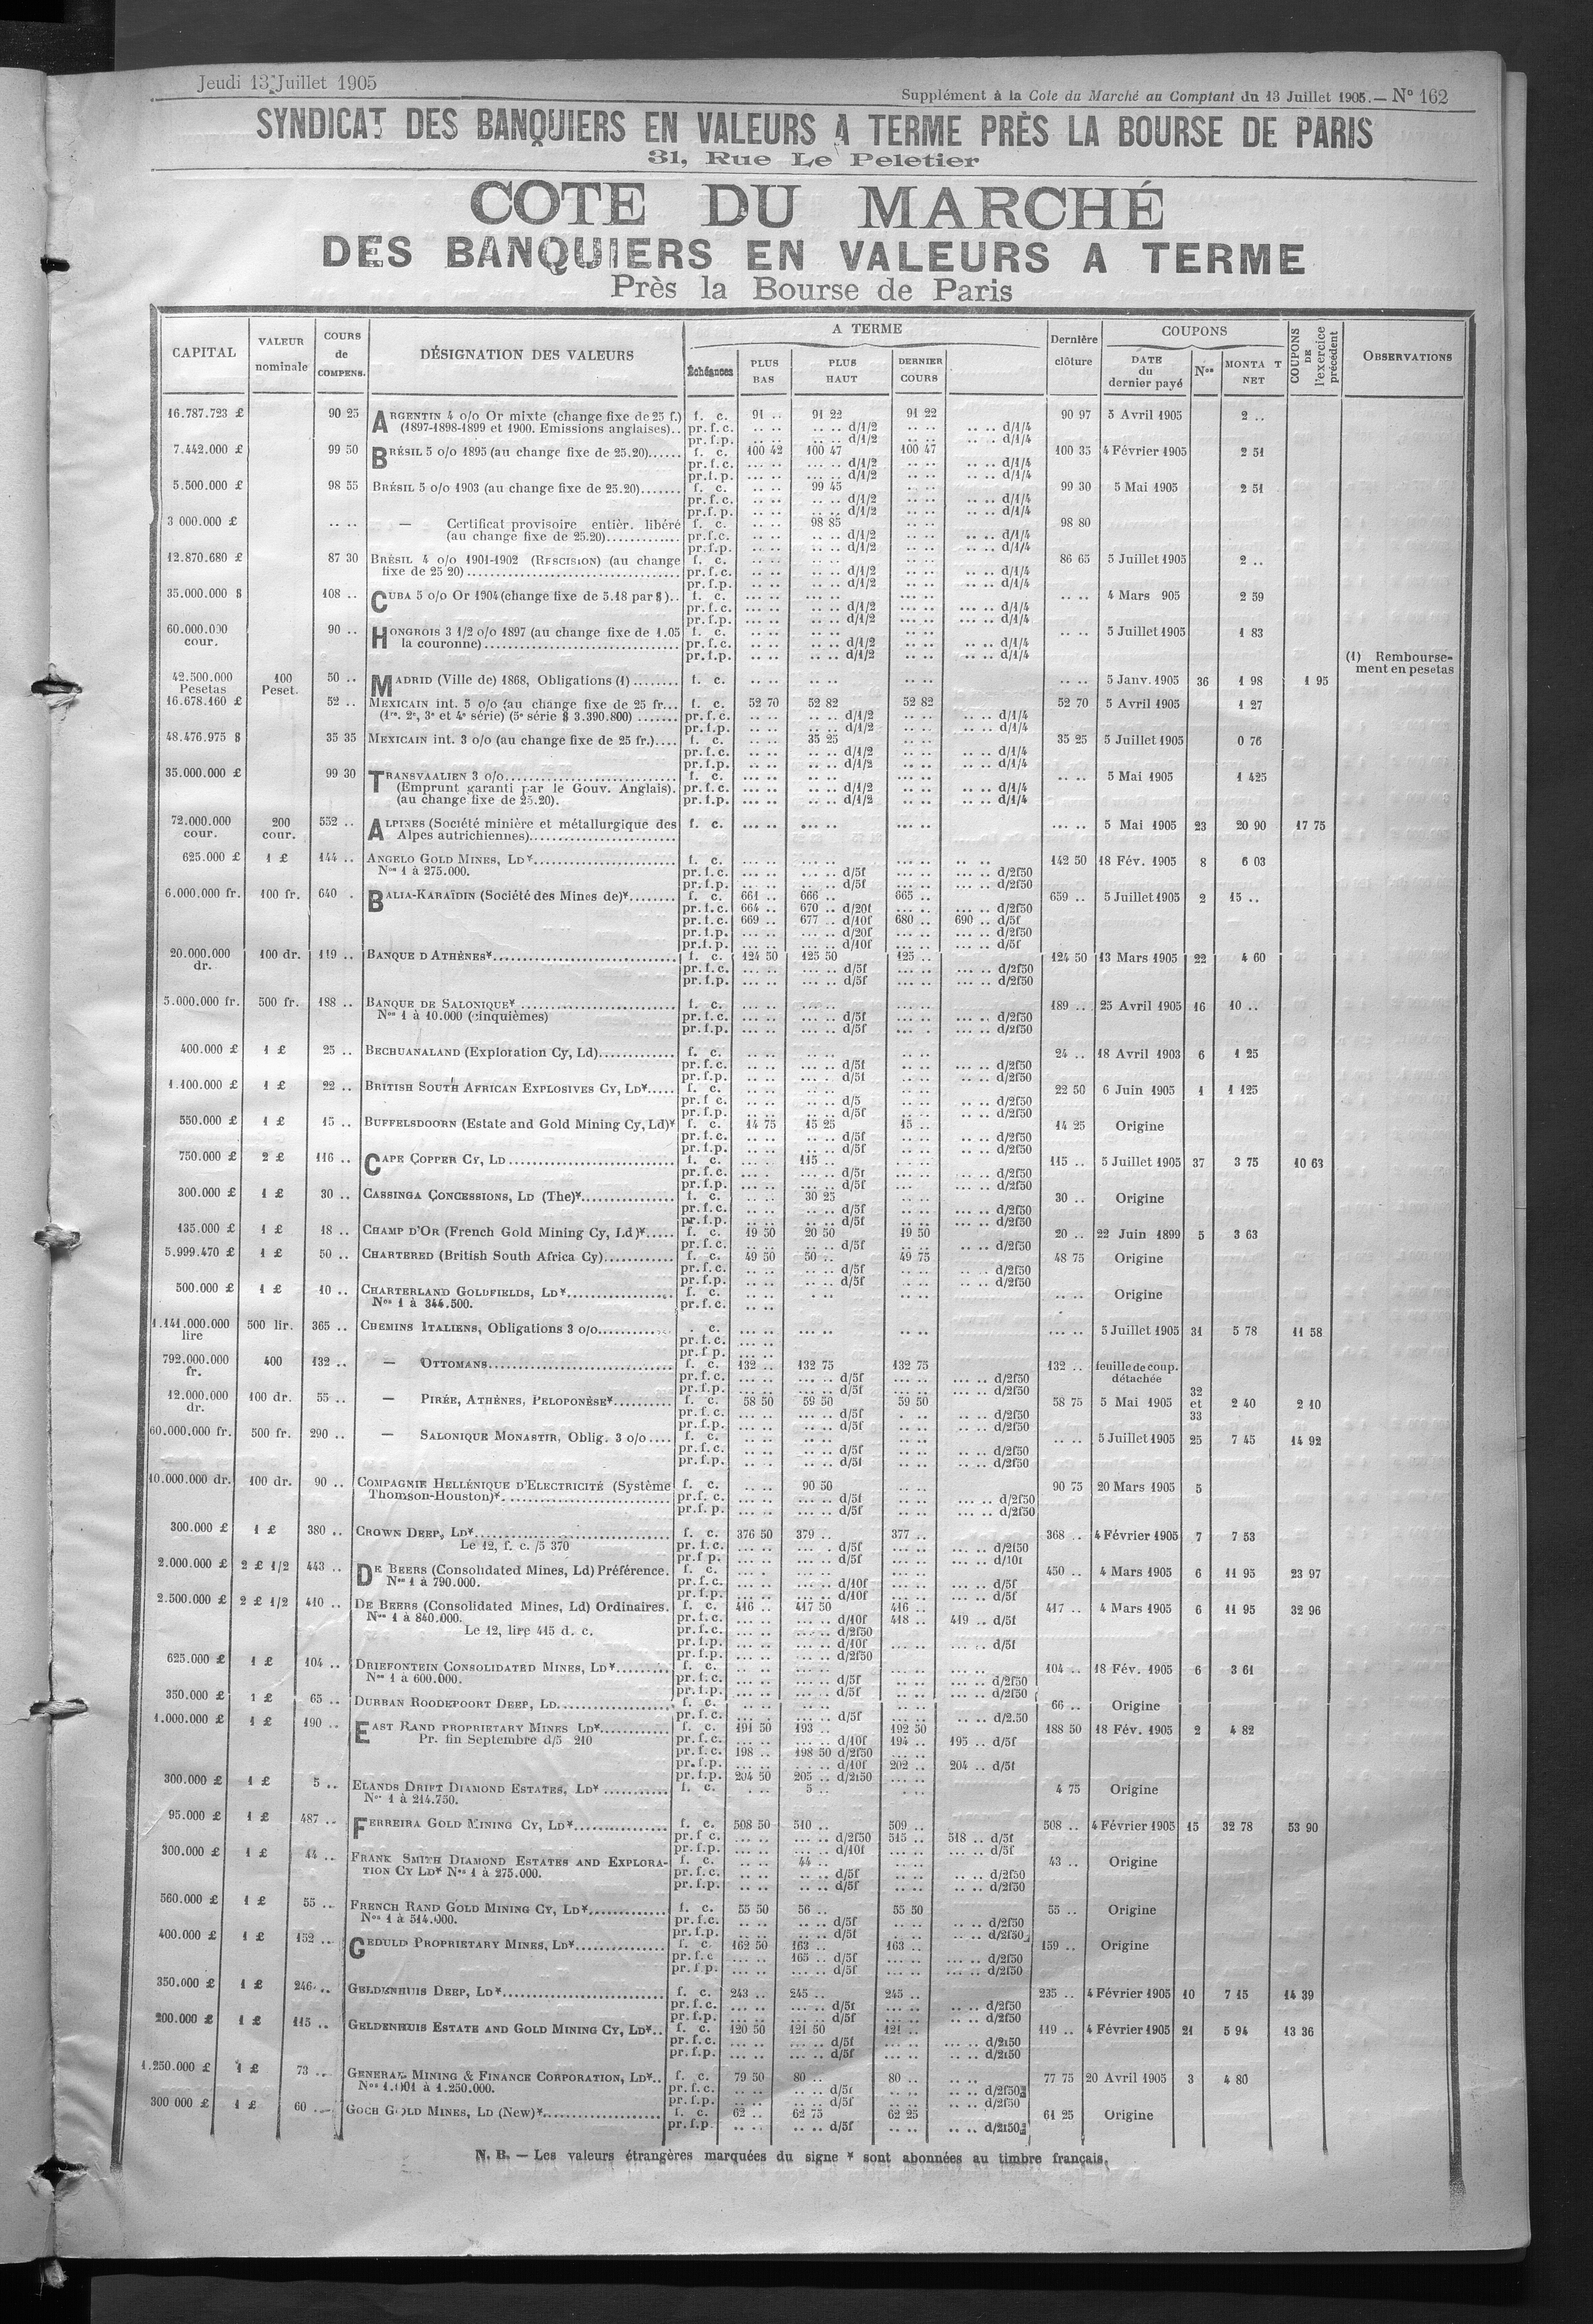 Jeudi 13 Juillet 1905
Supplément à la Cote du Marché au Comptant du 13 Juillet 1905. — N° 162
SYNDICAT DES BANQUIERS EN VALEURS A TERME PRÈS LA BOURSE DE PARIS
31, Rue Le Peletier
COTE DU MARCHÉ
DES BANQUIERS EN VALEURS A TERME
Près la Bourse de Paris
CAPITAL VALEUR nominale COURS de COMPENS. DÉSIGNATION DES VALEURS A TERME Échéances PLUS BAS PLUS HAUT DERNIER COURS Dernière clôture COUPONS DATE du dernier payé Nos MONTA T NET COUPONS DE l'exercice précédent OBSERVATIONS
16.787.723 £ 90 25 ARGENTIN 4 o/o Or mixte (change fixe de 25 f.) f. c. 91 .. 91 22 91 22 90 97 5 Avril 1905 2 ..
(1897-1898-1899 et 1900. Emissions anglaises).. pr. f. c. .. .. .. .. d/1/2 .. .. .. .. d/1/4
pr. f.p. .. .. .. .. d/1/2 .. .. .. .. d/1/4
7.442.000 £ 99 50 BRÉSIL 5 o/o 1895 (au change fixe de 25.20)...... f. c. 100 42 100 47 100 47 100 35 4 Février 1905 2 51
pr.f.c. ... .. ... .. d/1/2 .. .. .. .. d/1/4
pr.f.p. ... .. ... .. d/1/2 .. .. .. .. d/1/4
5.500.000 £ 98 55 BRÉSIL 5 o/o 1903 (au change fixe de 25.20)....... f. c. .. .. 99 45 .. .. 99 30 5 Mai 1905 2 51
pr.f.c. .. .. .. .. d/1/2 .. .. .. .. d/1/4
pr.f.p. .. .. .. .. d/1/2 .. .. .. .. d/1/4
3 000.000 £ .. .. — Certificat provisoire entièr. libéré f. c. .. .. 98 85 .. .. 98 80
(au change fixe de 25.20)............. pr.f.c. .. .. .. .. d/1/2 .. .. .. .. d/1/4
pr.f.p. .. .. .. .. d/1/2 .. .. .. .. d/1/4
12.870.680 £ 87 30 BRÉSIL 4 o/o 1901-1902 (RESCISION) (au change f. c. .. .. .. .. .. .. 86 65 5 Juillet 1905 2 ..
fixe de 25 20)................ pr.f.c. .. .. .. .. d/1/2 .. .. .. .. d/1/4
pr.f.p. .. .. .. .. d/1/2 .. .. .. .. d/1/4
35.000.000 $ 108 .. CUBA 5 o/o Or 1904 (change fixe de 5.18 par $).. f. c. ... .. ... .. ... .. .. .. 4 Mars 905 2 59
pr.f.c. ... .. ... .. d/1/2 .. .. ... .. d/1/4
pr.f.p. ... .. ... .. d/1/2 .. .. ... .. d/1/4
60.000.000 cour. 90 .. HONGROIS 3 1/2 o/o 1897 (au change fixe de 1.05 f. c. .. .. .. .. .. .. .. .. 5 Juillet 1905 1 83
la couronne)................ pr.f.c. .. .. .. .. d/1/2 .. .. .. .. d/1/4
pr.f.p. .. .. .. .. d/1/2 .. .. .. .. d/1/4
(1) Rembourse-
ment en pesetas
42.500.000 Pesetas 100 Peset. 50 .. MADRID (Ville de) 1868, Obligations (1) ........ f. c. .. .. .. .. .. .. .. .. 5 Janv. 1905 36 1 98 1 95
16.678.160 £ 52 .. MEXICAIN int. 5 o/o (au change fixe de 25 fr... f. c. 52 70 52 82 52 82 52 70 5 Avril 1905 1 27
(1re, 2e, 3e et 4e série) (5e série $ 3.390.800) ....... pr.f.c. .. .. .. .. d/1/2 .. .. .. .. d/1/4
pr.f.p. .. .. .. .. d/1/2 .. .. .. .. d/1/4
48.476.975 $ 35 35 MEXICAIN int. 3 o/o (au change fixe de 25 fr.).... f. c. .. .. 35 25 .. .. 35 25 5 Juillet 1905 0 76
pr.f.c. .. .. .. .. d/1/2 .. .. .. .. d/1/4
pr.f.p. .. .. .. .. d/1/2 .. .. .. .. d/1/4
35.000.000 £ 99 30 TRANSVAALIEN 3 o/o................ f. c. ... .. ... .. .. .. .. .. 5 Mai 1905 1 425
(Emprunt garanti par le Gouv. Anglais). pr.f.c. ... .. ... .. d/1/2 .. .. .. .. d/1/4
(au change fixe de 25.20). pr.f.p. ... .. ... .. d/1/2 .. .. .. .. d/1/4
72.000.000 cour. 200 cour. 552 .. ALPINES (Société minière et métallurgique des f. c. ... .. ... .. ... .. ... .. 5 Mai 1905 23 20 90 17 75
Alpes autrichiennes)................
625.000 £ 1 £ 144 .. ANGELO GOLD MINES, LD*................ f. c. ... .. ... .. ... .. .. .. 142 50 18 Fév. 1905 8 6 03
Nos 1 à 275.000. pr.f.c. ... .. ... .. d/5f ... .. ... .. d/2f50
pr.f.p. ... .. ... .. d/5f ... .. ... .. d/2f50
6.000.000 fr. 100 fr. 640 . BALIA-KARAÏDIN (Société des Mines de)*........ f. c. 661 .. 666 .. 665 .. 659 .. 5 Juillet 1905 2 15 ..
pr.f.c. 664 .. 670 .. d/20f ... .. ... .. d/2f50
pr.f.c. 669 .. 677 .. d/10f 680 .. 690 .. d/5f
pr.f.p. ... .. ... .. d/20f ... .. ... .. d/2f50
pr.f.p. ... .. ... .. d/10f ... .. ... .. d/5f
20.000.000 dr. 100 dr. 119 .. BANQUE D ATHÈNES*................ f. c. 124 50 125 50 125 .. 124 50 13 Mars 1905 22 4 60
pr.f.c. ... .. ... .. d/5f ... .. ... .. d/2f50
pr.f.p. ... .. ... .. d/5f ... .. ... .. d/2f50
5.000.000 fr. 500 fr. 188 .. BANQUE DE SALONIQUE*................ f. c. ... .. ... .. ... .. 189 .. 25 Avril 1905 16 10 ..
Nos 1 à 10.000 (cinquièmes) pr.f.c. ... .. ... .. d/5f ... .. ... .. d/2f50
pr.f.p. ... .. ... .. d/5f ... . ... .. d/2f50
400.000 £ 1 £ 25 .. BECHUANALAND (Exploration Cy, Ld)............. f. c. .. .. .. .. .. .. 24 .. 18 Avril 1903 6 1 25
pr.f.c. .. .. .. .. d/5f .. .. .. .. d/2f50
pr.f.p. .. .. .. .. d/5f .. .. .. .. d/2f50
1.100.000 £ 1 £ 22 .. BRITISH SOUTH AFRICAN EXPLOSIVES CY, LD*..... f. c. .. .. .. .. .. .. 22 50 6 Juin 1905 1 1 125
pr.f c. .. .. .. .. d/5 .. .. .. .. d/2f50
pr.f.p. .. .. .. .. d/5f .. .. .. .. d/2f50
550.000 £ 1 £ 15 .. BUFFELSDOORN (Estate and Gold Mining Cy, Ld)* f. c. 14 75 15 25 15 .. 14 25 Origine
pr.f.c. .. .. .. .. d/5f .. .. .. .. d/2f50
pr.f.p. .. .. .. .. d/5f .. .. .. .. d/2f50
750.000 £ 2 £ 116 .. CAPE COPPER CY, LD................ f. c. .. .. 115 .. .. .. 115 .. 5 Juillet 1905 37 3 75 10 63
pr.f.c. .. .. .. .. d/5f .. .. .. .. d/2f50
pr.f.p. .. .. .. .. d/5f .. .. .. .. d/2f50
300.000 £ 1 £ 30 .. CASSINGA CONCESSIONS, LD (The)*................ f. c. .. .. 30 25 .. .. 30 .. Origine
pr.f.c. .. .. .. .. d/5f .. .. .. .. d/2f50
pr.f.p. .. .. .. .. d/5f .. .. .. .. d/2f50
135.000 £ 1 £ 18 .. CHAMP D'OR (French Gold Mining Cy, Ld)*..... f. c. 19 50 20 50 19 50 20 .. 22 Juin 1899 5 3 63
pr.f.c. .. .. .. .. d/5f .. .. .. .. d/2f50
5.999.470 £ 1 £ 50 .. CHARTERED (British South Africa Cy)............ f. c. 49 50 50 .. 49 75 48 75 Origine
pr.f.c. .. .. .. .. d/5f .. .. .. .. d/2f50
pr.f.p. .. .. .. .. d/5f .. .. .. .. d/2f50
500.000 £ 1 £ 10 .. CHARTERLAND GOLDFIELDS, LD*................ f. c. .. .. . .. .. .. .. .. Origine
Nos 1 à 344.500. pr.f.c. .. ..
1.141.000.000 lire 500 lir. 365 .. CHEMINS ITALIENS, Obligations 3 o/o............ . c. ... .. ... .. .. .. ... .. 5 Juillet 1905 31 5 78 11 58
pr.f.c. ... ..
pr.f p. ... ..
792.000.000 fr. 400 132 .. — OTTOMANS................ f. c. 132 .. 132 75 132 75 132 .. feuille de coup. détachée
pr.f.c. ... .. ... .. d/5f ... .. ... .. d/2f50
pr.f.p. ... .. ... .. d/5f ... .. ... .. d/2f50
12.000.000 dr. 100 dr. 55 .. — PIRÉE, ATHÈNES, PELOPONÈSE*.......... f. c. 58 50 59 50 59 50 58 75 5 Mai 1905 32 et 33 2 40 2 10
pr.f.c. .. .. ... .. d/5f . .. .. .. d/2f50
pr.f.p. .. .. .. .. d/5f .. .. .. .. d/2f50
60.000.000 fr. 500 fr. 290 .. — SALONIQUE MONASTIR, Oblig. 3 o/o.... f. c. .. .. .. .. .. .. .. .. 5 Juillet 1905 25 7 45 14 92
pr.f.c. .. .. .. .. d/5f .. .. .. .. d/2f50
pr.f.p. .. .. .. .. d/5f .. .. .. .. d/2f50
10.000.000 dr. 100 dr. 90 .. COMPAGNIE HELLÉNIQUE D'ELECTRICITÉ (Système f. c. .. .. 90 50 .. .. 90 75 20 Mars 1905 5
Thomson-Houston)*................ pr.f. c. ... .. ... .. d/5f .. .. ... .. d/2f50
pr.f. p. ... .. ... .. d/5f .. .. ... .. d/2f50
300.000 £ 1 £ 380 .. CROWN DEEP, LD*................ f. c. 376 50 379 .. 377 .. 368 .. 4 Février 1905 7 7 53
Le 12, f. c. /5 370 pr.f.c. ... .. ... .. d/5f ... .. ... .. d/2f50
pr.f p. ... .. ... .. d/5f ... .. ... .. d/10f
2.000.000 £ 2 £ 1/2 443 .. DE BEERS (Consolidated Mines, Ld) Préférence. f. c. ... . ... .. ... .. 450 .. 4 Mars 1905 6 11 95 23 97
Nos 1 à 790.000. pr.f.c. ... .. ... .. d/10f ... .. ... .. d/5f
pr.f.p. ... .. ... .. d/10f ... .. ... .. d/5f
2.500.000 £ 2 £ 1/2 410 .. DE BEERS (Consolidated Mines, Ld) Ordinaires. f. c. 416 .. 417 50 416 .. 417 .. 4 Mars 1905 6 11 95 32 96
Nos 1 à 840.000. pr.f.c. ... .. ... .. d/10f 418 .. 419 .. d/5f
Le 12, lire 415 d. c. pr.f.c. ... .. ... .. d/2f50
pr.f.p. ... .. ... .. d/10f ... .. ... .. d/5f
pr.f.p. ... .. ... .. d/2f50
625.000 £ 1 £ 104 .. DRIEFONTEIN CONSOLIDATED MINES, LD*......... f. c. ... .. ... .. ... .. 104 .. 18 Fév. 1905 6 3 61
Nos 1 à 600.000. pr.f.c. ... .. ... .. d/5f ... .. ... .. d/2f50
pr.f.p. ... .. ... .. d/5f ... .. ... .. d/2f50
350.000 £ 1 £ 65 .. DURBAN ROODEPOORT DEEP, LD................ f. c. .. .. .. .. .. .. 66 .. Origine
pr.f.c. .. .. .. .. d/5f .. .. .. .. d/2.50
1.000.000 £ 1 £ 190 .. EAST RAND PROPRIETARY MINES LD*........... f. c. 191 50 193 .. 192 50 188 50 18 Fév. 1905 2 4 82
Pr. fin Septembre d/5 210 pr.f.c. ... .. ... .. d/10f 194 .. 195 .. d/5f
pr.f.c. 198 .. 198 50 d/2f50 ... ..
pr.f.p. ... .. . .. d/10f 202 .. 204 .. d/5f
pr.f.p. 204 50 205 .. d/2f50 ... ..
300.000 £ 1 £ 5 .. ELANDS DRIFT DIAMOND ESTATES, LD*........... f. c. . .. 5 .. . .. 4 75 Origine
Nos 1 à 214.750.
95.000 £ 1 £ 487 .. FERREIRA GOLD MINING CY, LD*............... f. c. 508 50 510 .. 509 .. 508 .. 4 Février 1905 15 32 78 53 90
pr.f c. ... .. ... .. d/2f50 515 .. 518 .. d/5f
pr.f.p. ... .. ... .. d/10f ... .. ... .. d/5f
300.000 £ 1 £ 44 .. FRANK SMITH DIAMOND ESTATES AND EXPLORA- f. c. .. .. 44 .. .. .. 43 .. Origine
TION CY LD* Nos 1 à 275.000. pr.f.c. .. .. .. .. d/5f .. .. .. .. d/2f50
pr.f.p. .. .. .. .. d/5f .. .. .. .. d/2f50
560.000 £ 1 £ 55 .. FRENCH RAND GOLD MINING CY, LD*............. f. c. 55 50 56 .. 55 50 55 .. Origine
Nos 1 à 514.000. pr.f.c. .. .. .. .. d/5f .. .. .. .. d/2f50
pr.f.p. .. .. .. .. d/5f .. .. .. .. d/2f50
400.000 £ 1 £ 152 .. GEDULD PROPRIETARY MINES, LD*............... f. c. 162 50 163 .. 163 .. 159 .. Origine
pr.f.c ... .. 165 .. d/5f ... .. ... .. d/2f50
pr.f.p. ... .. ... .. d/5f ... .. ... .. d/2f50
350.000 £ 1 £ 246 .. GELDENHUIS DEEP, LD*................ f. c. 243 .. 245 .. 245 .. 235 .. 4 Février 1905 10 7 15 14 39
pr.f.c. ... .. ... .. d/5f ... .. .. .. d/2f50
pr.f.p. ... .. ... .. d/5f ... .. .. .. d/2f50
200.000 £ 1 £ 115 .. GELDENHUIS ESTATE AND GOLD MINING CY, LD*.. f. c. 120 50 121 50 121 .. 119 .. 4 Février 1905 21 5 94 13 36
pr.f.c. ... .. ... .. d/5f ... .. .. .. d/2f50
pr.f.p. ... .. ... .. d/5f ... .. .. .. d/2f50
1.250.000 £ 1 £ 73 .. GENERAL MINING & FINANCE CORPORATION, LD*.. f. c. 79 50 80 .. 80 .. .. .. 77 75 20 Avril 1905 3 4 80
Nos 1.001 à 1.250.000. pr.f.c. .. .. .. .. d/5f .. .. .. .. d/2f50
pr.f.p. .. .. .. .. d/5f .. .. .. .. d/2f50
300 000 £ 1 £ 60 .. GOCH GOLD MINES, LD (New)*................ f. c. 62 .. 62 75 62 25 61 25 Origine
pr.f.p. .. .. .. .. d/5f .. .. .. .. d/2f50
N. B. — Les valeurs étrangères marquées du signe * sont abonnées au timbre français.